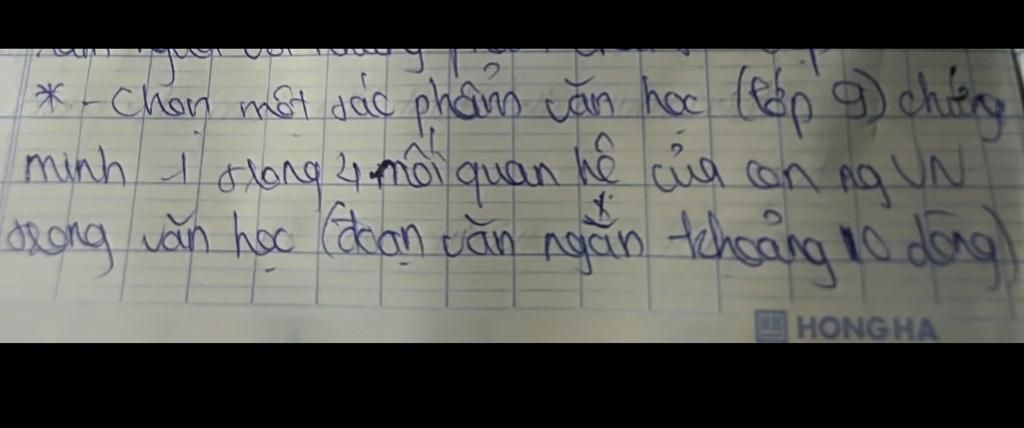 * - Chọn một tác phẩm văn học (lớp 9) chứng
minh 1 trong 4 mối quan hệ của con ng VN
trong văn học (đoạn văn ngắn khoảng 10 dòng)
HONG HA